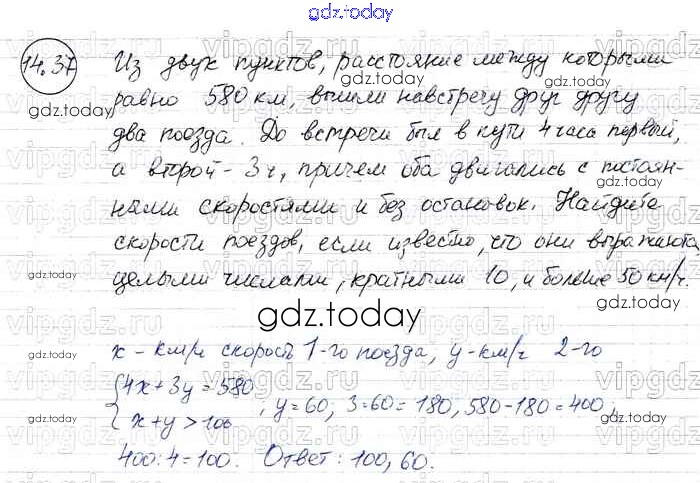 gdz.today
14.37 Из двух пунктов, расстояние между которыми
равно 580 км, вышли навстречу друг другу
два поезда. До встречи был в пути 4 часа первый,
а второй - 3 ч, причем оба двигались с постоян-
ными скоростями и без остановок. Найдите
скорости поездов, если известно, что они выражаются
целыми числами, кратными 10, и больше 50 км/ч.
gdz.today
x - км/ч скорость 1-го поезда, y - км/ч 2-го
{4x + 3y = 580
x + y > 100, y = 60, 3·60 = 180, 580 - 180 = 400,
400 : 4 = 100. Ответ: 100, 60.